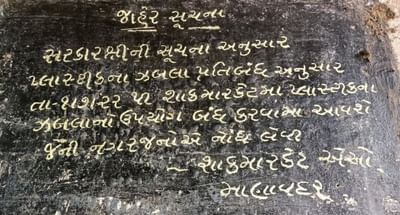 જાહેર સૂચના
સરકારશ્રીની સૂચના અનુસાર
પ્લાસ્ટીકના ઝબલા પ્રતિબંધ અનુસાર
શાકમારકેટમાં પ્લાસ્ટીકના
ઝબલાનો ઉપયોગ બંધ કરવામાં આવશે
જેની નગરજનોએ નોંધ લેવી
~ શાકમારકેટ એસો.
માણાવદર